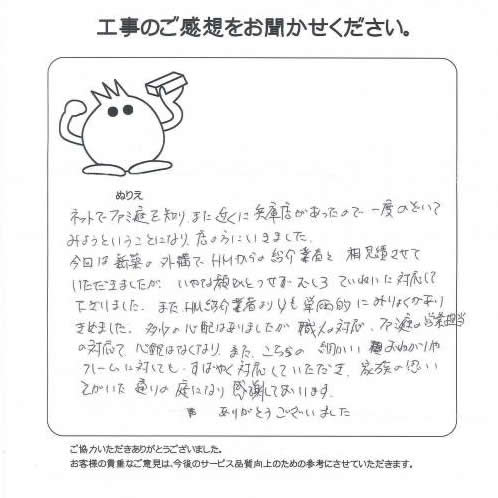 工事のご感想をお聞かせください。
ぬりえ
ネットでファミ庭を知り、また近くに兵庫店があったので一度のぞいて
みようということになり、店の方にいきました。
今回は新築の外構でHMからの紹介業者と相見積させて
いただきましたが、いやな顔ひとつせずむしろていねいに対応して
下さいました。またHM紹介業者よりも単価的にみりょくがあり
きめました。多少の心配はありましたが職人の対応、ファミ庭の営業担当
の対応で心配はなくなり、また、こちらの細かい
クレームに対しても、すばやく対応していただき、家族の思い
えがいた通りの庭になり感謝しております。
ありがとうございました
ご協力いただきありがとうございました。
お客様の貴重なご意見は、今後のサービス品質向上のための参考にさせていただきます。